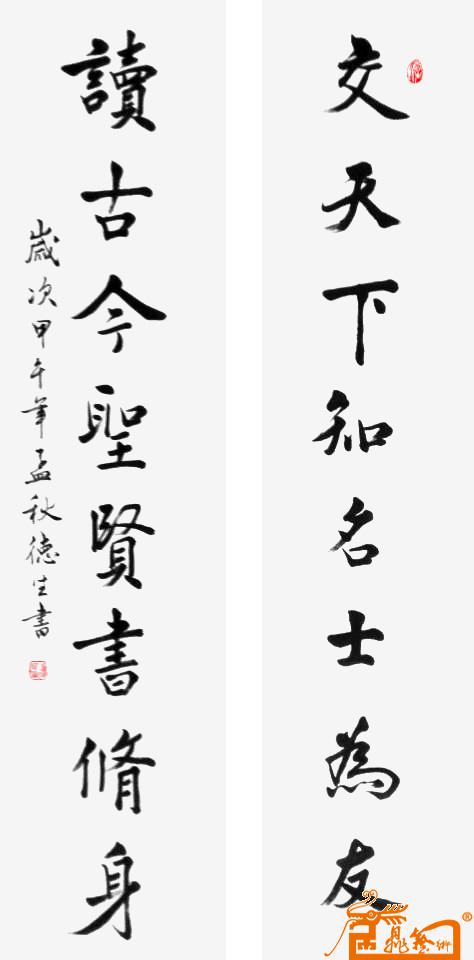 交天下知名士為友
讀古今聖賢書脩身
歲次甲午年孟秋德生書